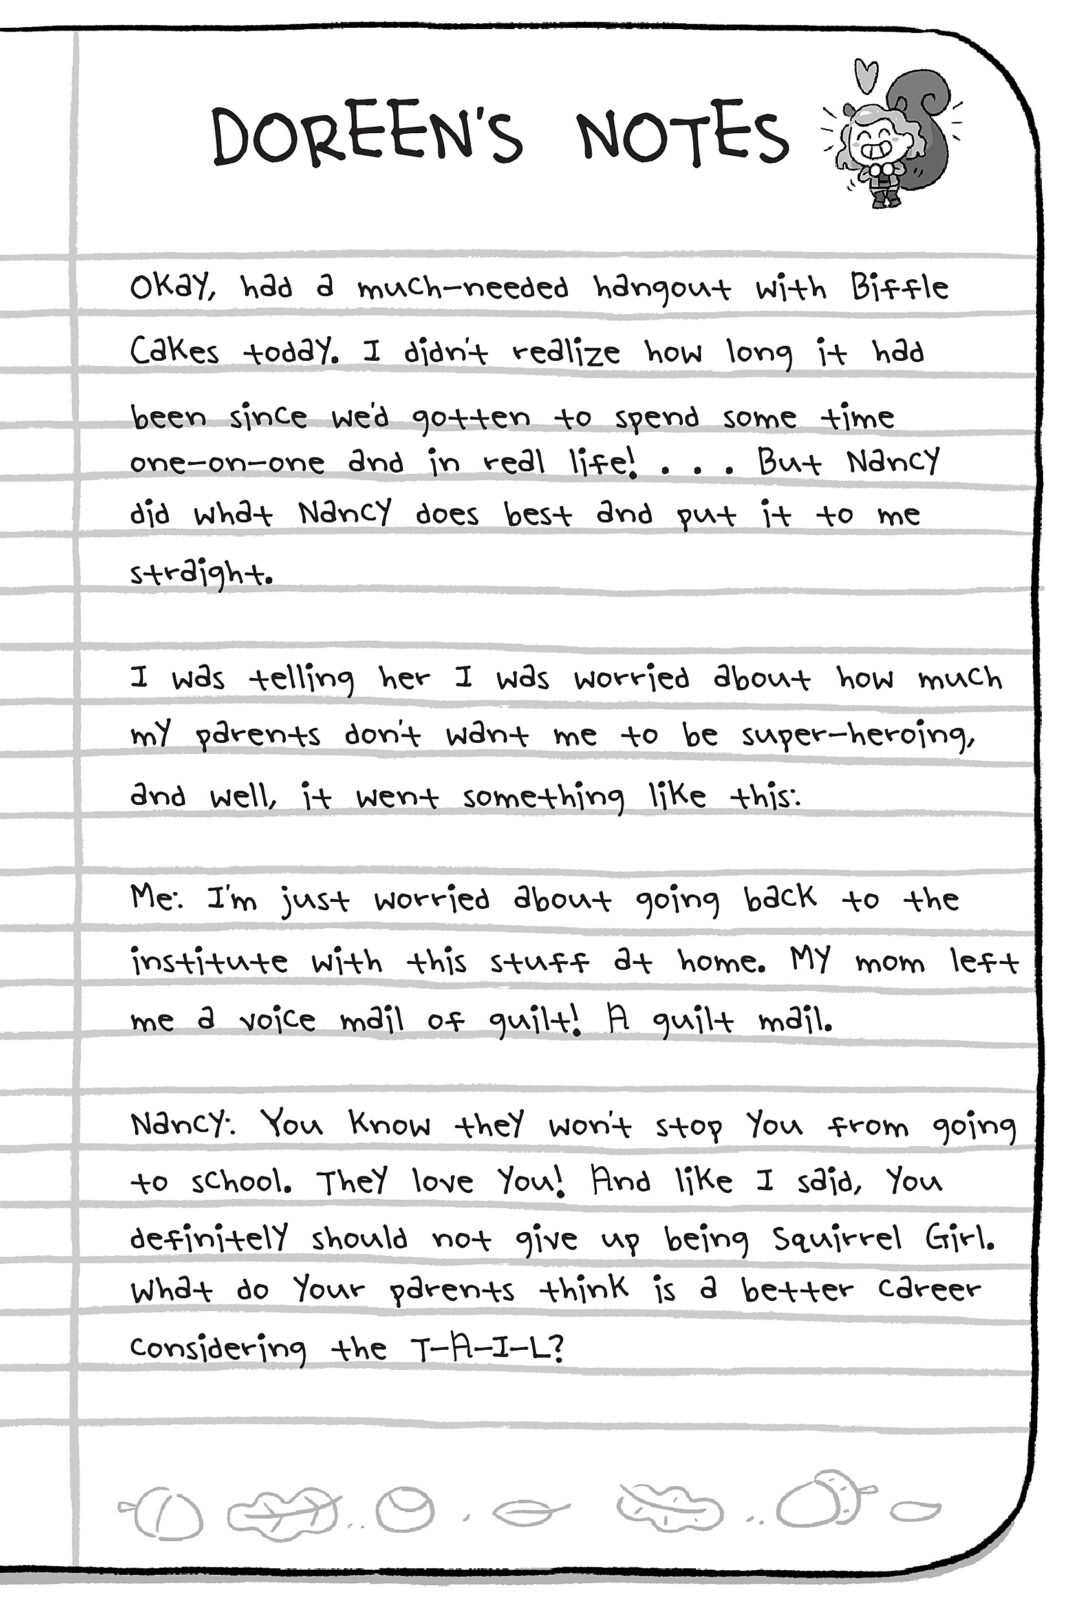 DOREEN'S NOTES
Okay, had a much-needed hangout with Biffle
Cakes today. I didn't realize how long it had
been since we'd gotten to spend some time
one-on-one and in real life! . . . But Nancy
did what Nancy does best and put it to me
straight.
I was telling her I was worried about how much
my parents don't want me to be super-heroing,
and well, it went something like this:
Me: I'm just worried about going back to the
institute with this stuff at home. My mom left
me a voice mail of guilt! A guilt mail.
Nancy: You know they won't stop you from going
to school. They love you! And like I said, you
definitely should not give up being Squirrel Girl.
What do your parents think is a better career
considering the T-A-I-L?